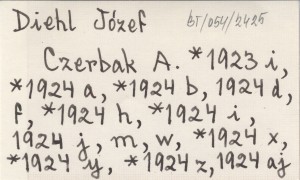 Diehl Józef
BT/054/2425
Czerbak A. *1923 i,
*1924 a, *1924 b, 1924 d,
f, *1924 h, *1924 i,
1924 j, m, w, *1924 x,
*1924 y, *1924 z, 1924 aj